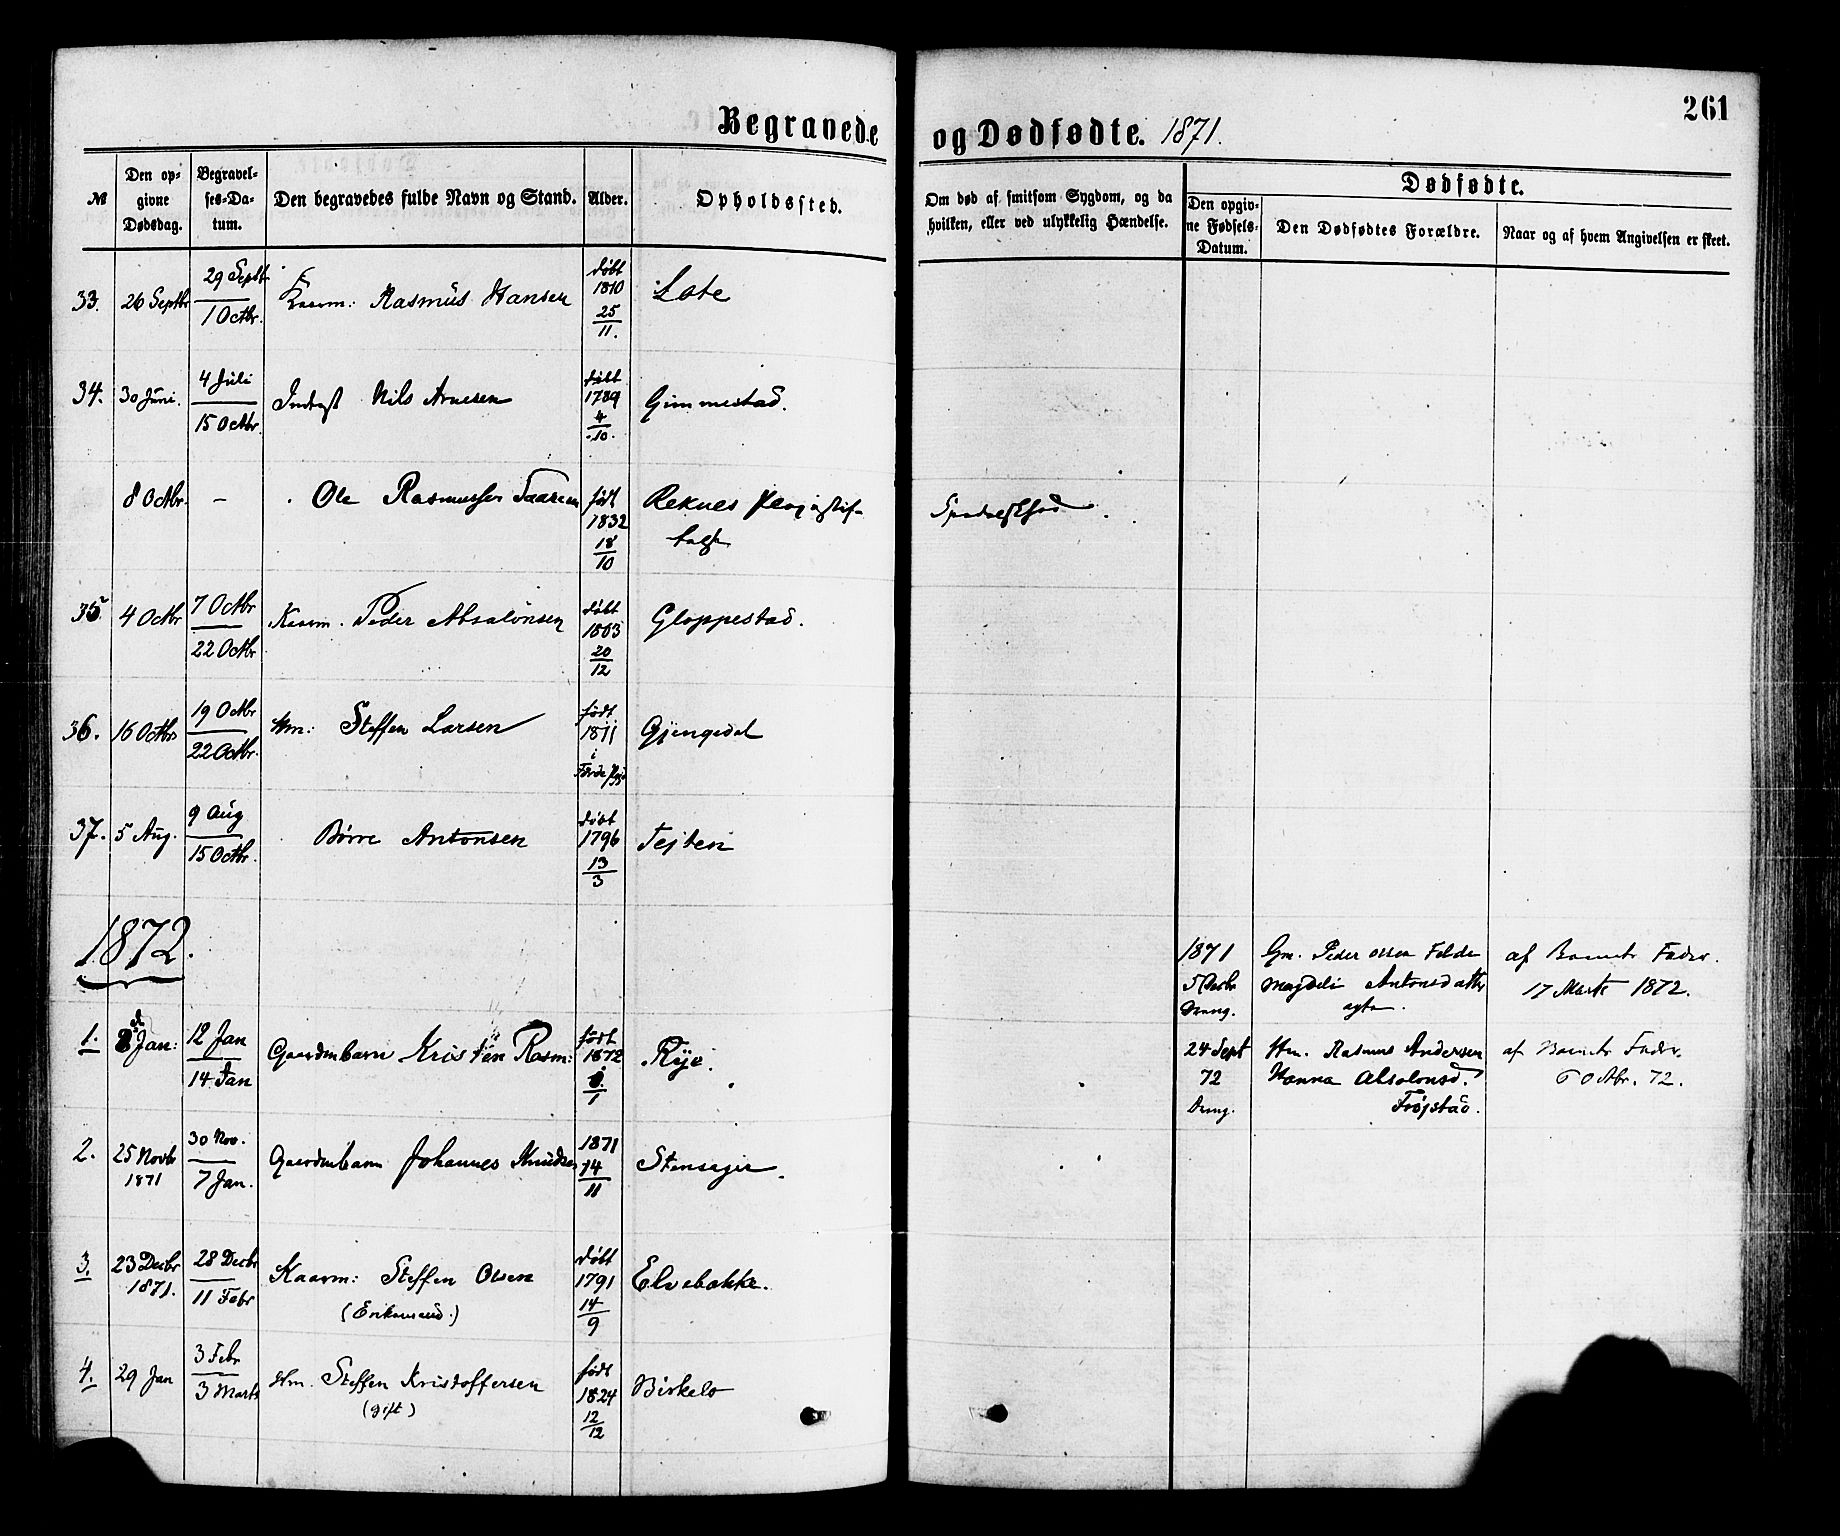 Begravede og Dødfødte. 1871.
261
№
Den opgivne Dødsdag.
Begravelses-Datum.
Den begravedes fulde Navn og Stand.
Alder.
Opholdssted.
Om død af smitsom Sygdom, og da hvilken, eller ved ulykkelig Hændelse.
Dødfødte.
Den opgivne Fødsels-Datum.
Den Dødfødtes Forældre.
Naar og af hvem Angivelsen er skeet.
33. 26 Septbr 29 Septbr / 1 Octbr. Kaarm: Rasmus Hansen døbt 1810 25/11. Lote
34. 30 Juni. 4 Juli / 15 Octbr. Nils Arnesen døbt 1789 4/10. Gimmestad.
8 Octbr. - Ole Rasmussen født 1832 18/10 Reknes
35 4 Octbr 7 Octbr / 22 Octbr Kaarm. Peder Absalonsen døbt 1803 20/12 Gloppestad.
36. 16 Octbr 19 Octbr / 22 Octbr. Hm: Steffen Larsen født 1811 i Førde Gjengedal
37. 5 Aug. 9 Aug / 15 Octbr. Børre Antonsen døbt 1796 13/3 Tejten
1872.
1871 5 Decbr Gm. Peder Olsen Felde af Barnets Fader.
Magdeli Antonsdatter 17 Marts 1872.
1. 8 Jan: 12 Jan / 14 Jan Gaardmbarn Kristen Rasm: født 1872 /1 Rye.
24 Sept 72 Dreng. Hm. Rasmus Andersen af Barnets Fader
Hanna Absolonsd. 6 Octbr. 72.
Frøjstad.
2. 25 Novbr 1871 30 Nov. / 7 Jan. Gaardmbarn Johannes Knudsen 1871 14/11
3. 23 Decbr 1871. 28 Decbr / 11 Febr Kaarm: Steffen Olsen døbt 1791 14/9 Elvebakke.
4. 29 Jan 3 Febr / 3 Marts Hm. Steffen Kristoffersen født 1824 12/12 Birkelo
(gift)